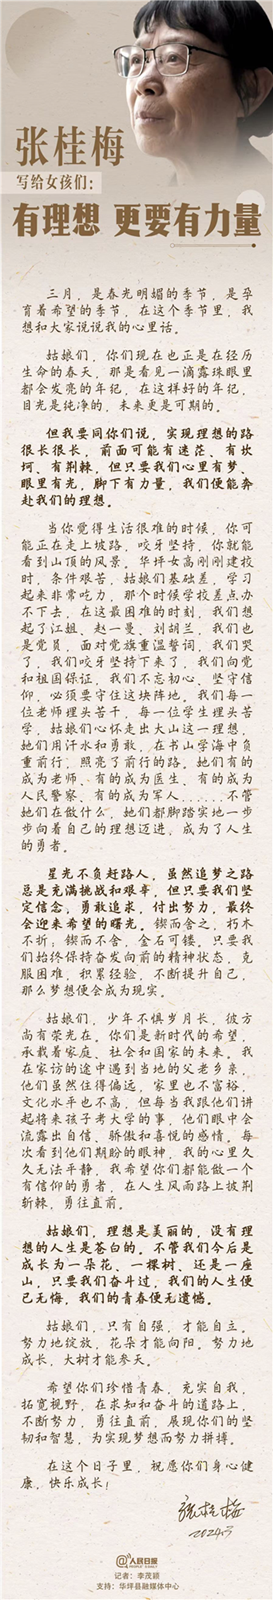 张桂梅
写给女孩们：
有理想 更要有力量
三月，是春光明媚的季节，是孕
育着希望的季节，在这个季节里，我
想和大家说说我的心里话。
姑娘们，你们现在也正是在经历
生命的春天，那是看见一滴露珠眼里
都会发亮的年纪，在这样好的年纪，
目光是纯净的，未来更是可期的。
但我要同你们说，实现理想的路
很长很长，前面可能有迷茫、有坎
坷、有荆棘，但只要我们心里有梦、
眼里有光，脚下有力量，我们便能奔
赴我们的理想。
当你觉得生活很难的时候，你可
能正在走上坡路，咬牙坚持，你就能
看到山顶的风景。华坪女高刚刚建校
时，条件艰苦，姑娘们基础差，学习
起来非常吃力，那个时候学校差点办
不下去，在这最困难的时刻，我们想
起了江姐、赵一曼、刘胡兰，我们也
是党员，面对党旗重温誓词，我们哭
了，我们咬牙坚持下来了，我们向党
和祖国保证，我们不忘初心、坚守信
仰，必须要守住这块阵地。我们每一
位老师埋头苦干，每一位学生埋头苦
学，姑娘们心怀走出大山这一理想，
她们用汗水和勇敢，在书山学海中负
重前行，照亮了前行的路。她们有的
成为老师、有的成为医生、有的成为
人民警察、有的成为军人......不管
她们在做什么，她们都脚踏实地一步
步向着自己的理想迈进，成为了人生
的勇者。
星光不负赶路人，虽然追梦之路
总是充满挑战和艰辛，但只要我们坚
定信念，勇敢追求，付出努力，最终
会迎来希望的曙光。锲而舍之，朽木
不折；锲而不舍，金石可镂。只要我
们始终保持奋发向前的精神状态，克
服困难，积累经验，不断提升自己，
那么梦想便会成为现实。
姑娘们，少年不惧岁月长，彼方
尚有荣光在。你们是新时代的希望，
承载着家庭、社会和国家的未来。我
在家访的途中遇到当地的父老乡亲，
他们虽然住得偏远，家里也不富裕，
文化水平也不高，但每当我跟他们讲
起将来孩子考大学的事，他们眼中会
流露出自信、骄傲和喜悦的感情。每
次看到他们期盼的眼神，我的心里久
久无法平静，我希望你们都能做一个
有信仰的勇者，在人生风雨路上披荆
斩棘，勇往直前。
姑娘们，理想是美丽的，没有理
想的人生是苍白的。不管我们今后是
成长为一朵花、一棵树、还是一座
山，只要我们奋斗过，我们的人生便
已无悔，我们的青春便无遗憾。
姑娘们，只有自强，才能自立。
努力地绽放，花朵才能向阳。努力地
成长，大树才能参天。
希望你们珍惜青春，充实自我，
拓宽视野，在求知和奋斗的道路上，
不断努力，勇往直前，展现你们的坚
韧和智慧，为实现梦想而努力拼搏。
在这个日子里，祝愿你们身心健
康，快乐成长！
张桂梅
2024.3
@人民日报
记者：李茂颖
支持：华坪县融媒体中心